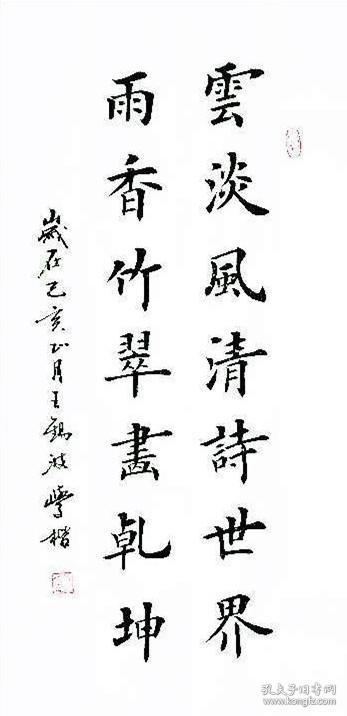 雲淡風清詩世界
雨香竹翠畫乾坤
歲在己亥正月王錫波學楷
孔夫子旧书网